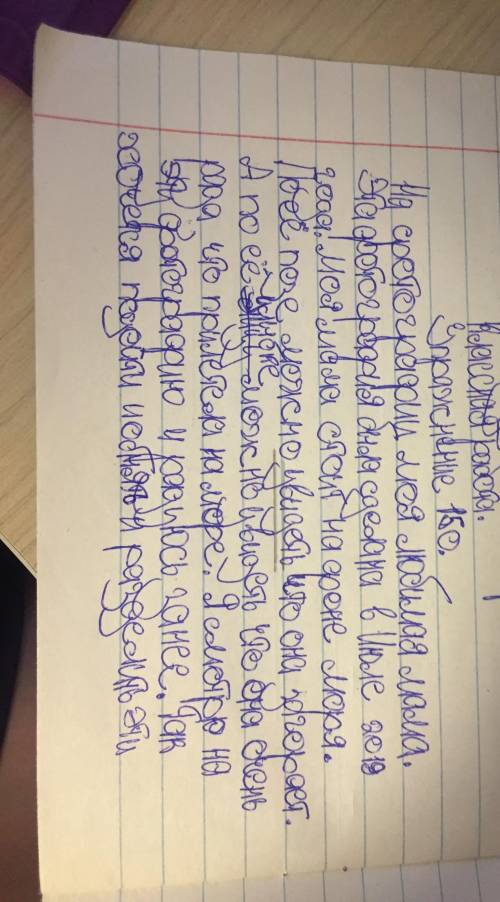 Классная работа.
Упражнение 150.
На фотографии моя любимая мама.
Эта фотография была сделана в Июле 2019
года. Моя мама стоит на фоне моря.
По её позе можно увидеть что она
А по её мимике можно что она очень
рада что прилетела на море. Я смотрю на
эту фотографию и радуюсь за нее. Так
хочется подойти и обнять и разделить эти